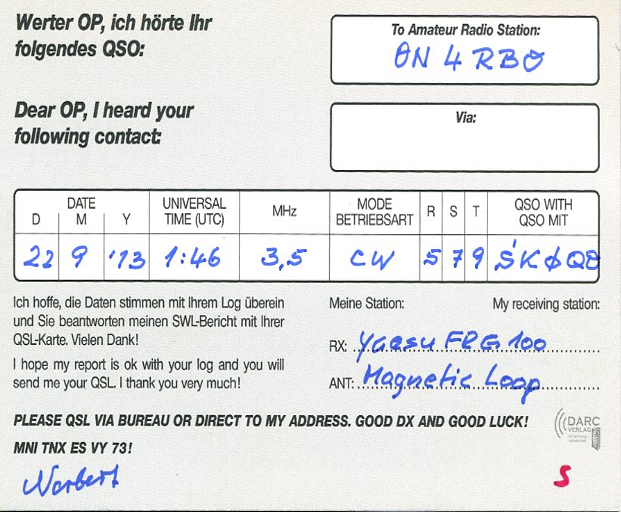 Werter OP, ich hörte Ihr
folgendes QSO:
To Amateur Radio Station:
ON4RBO
Dear OP, I heard your
following contact:
Via:
DATE
D M Y
UNIVERSAL
TIME (UTC)
MHz
MODE
BETRIEBSART
R S T
QSO WITH
QSO MIT
22 9 '13 1:46 3,5 CW 5 7 9
Ich hoffe, die Daten stimmen mit Ihrem Log überein
und Sie beantworten meinen SWL-Bericht mit Ihrer
QSL-Karte. Vielen Dank!
I hope my report is ok with your log and you will
send me your QSL. I thank you very much!
Meine Station: My receiving station:
RX: Yaesu FRG 100
ANT: Magnetic Loop
PLEASE QSL VIA BUREAU OR DIRECT TO MY ADDRESS. GOOD DX AND GOOD LUCK!
MNI TNX ES VY 73!
DARC
VERLAG
Norbert
S